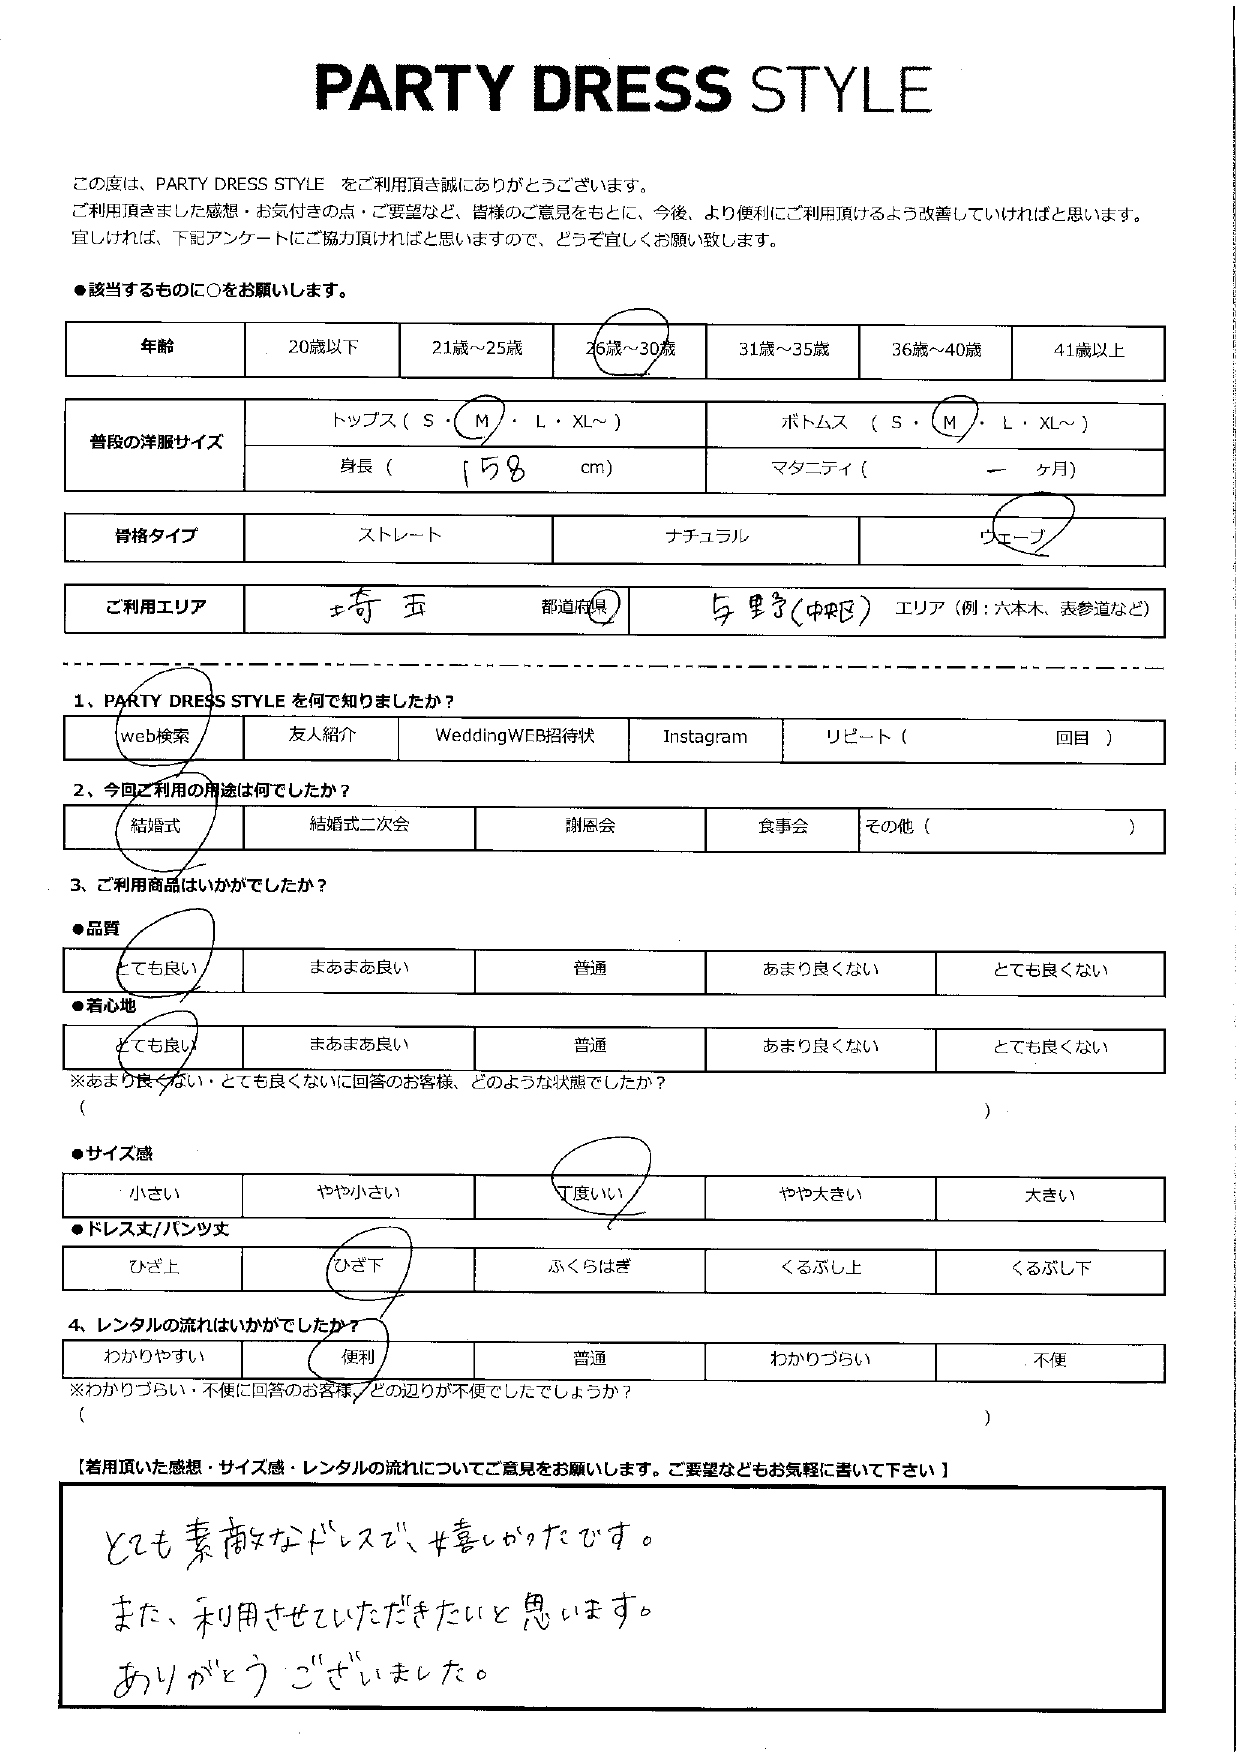 PARTY DRESS STYLE
この度は、PARTY DRESS STYLE をご利用頂き誠にありがとうございます。
ご利用頂きました感想・お気付きの点・ご要望など、皆様のご意見をもとに、今後、より便利にご利用頂けるよう改善していければと思います。
宜しければ、下記アンケートにご協力頂ければと思いますので、どうぞ宜しくお願い致します。
●該当するものに○をお願いします。
年齢 20歳以下 21歳～25歳 26歳～30歳 31歳～35歳 36歳～40歳 41歳以上
普段の洋服サイズ トップス ( S ・ M ・ L ・ XL～ ) ボトムス ( S ・ M ・ L ・ XL～ )
身長 ( 158 cm) マタニティ ( ー ヶ月)
骨格タイプ ストレート ナチュラル ウェーブ
ご利用エリア 埼玉 都道府県 与野(中央区) エリア（例：六本木、表参道など）
1、PARTY DRESS STYLE を何で知りましたか？
web検索 友人紹介 WeddingWEB招待状 Instagram リピート ( 回目 )
2、今回ご利用の用途は何でしたか？
結婚式 結婚式二次会 謝恩会 食事会 その他 ( )
3、ご利用商品はいかがでしたか？
●品質
とても良い まあまあ良い 普通 あまり良くない とても良くない
●着心地
とても良い まあまあ良い 普通 あまり良くない とても良くない
※あまり良くない・とても良くないに回答のお客様、どのような状態でしたか？
( )
●サイズ感
小さい やや小さい 丁度いい やや大きい 大きい
●ドレス丈/パンツ丈
ひざ上 ひざ下 ふくらはぎ くるぶし上 くるぶし下
4、レンタルの流れはいかがでしたか？
わかりやすい 便利 普通 わかりづらい 不便
※わかりづらい・不便に回答のお客様、どの辺りが不便でしたでしょうか？
( )
【着用頂いた感想・サイズ感・レンタルの流れについてご意見をお願いします。ご要望などもお気軽に書いて下さい 】
とても素敵なドレスで、嬉しかったです。
また、利用させていただきたいと思います。
ありがとうございました。